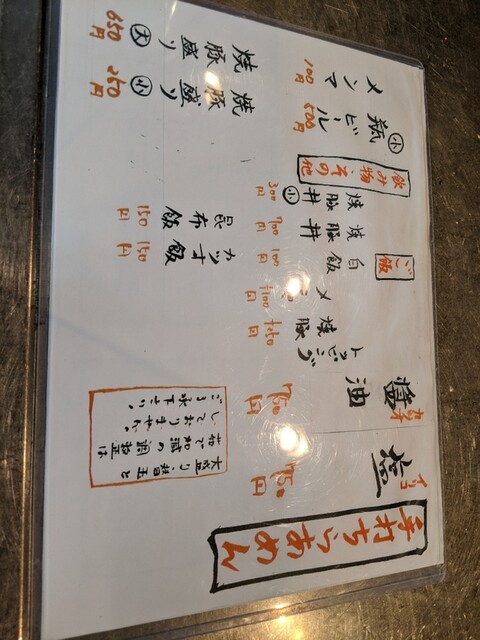 手打ちらあめん
塩 750円
醤油 750円
トッピング
焼豚 +250円
メ
+100
ご飯
白飯 100円
焼豚丼 700円
焼豚丼 小 300円
カツオ飯 150円
昆布飯 150円
飲み物・その他
瓶ビール 小 500円
メンマ 100円
焼豚盛り 小 250円
焼豚盛り 大 650円
大盛り、替玉と
茹で加減の調整は
しておりません。
ご了承下さい。